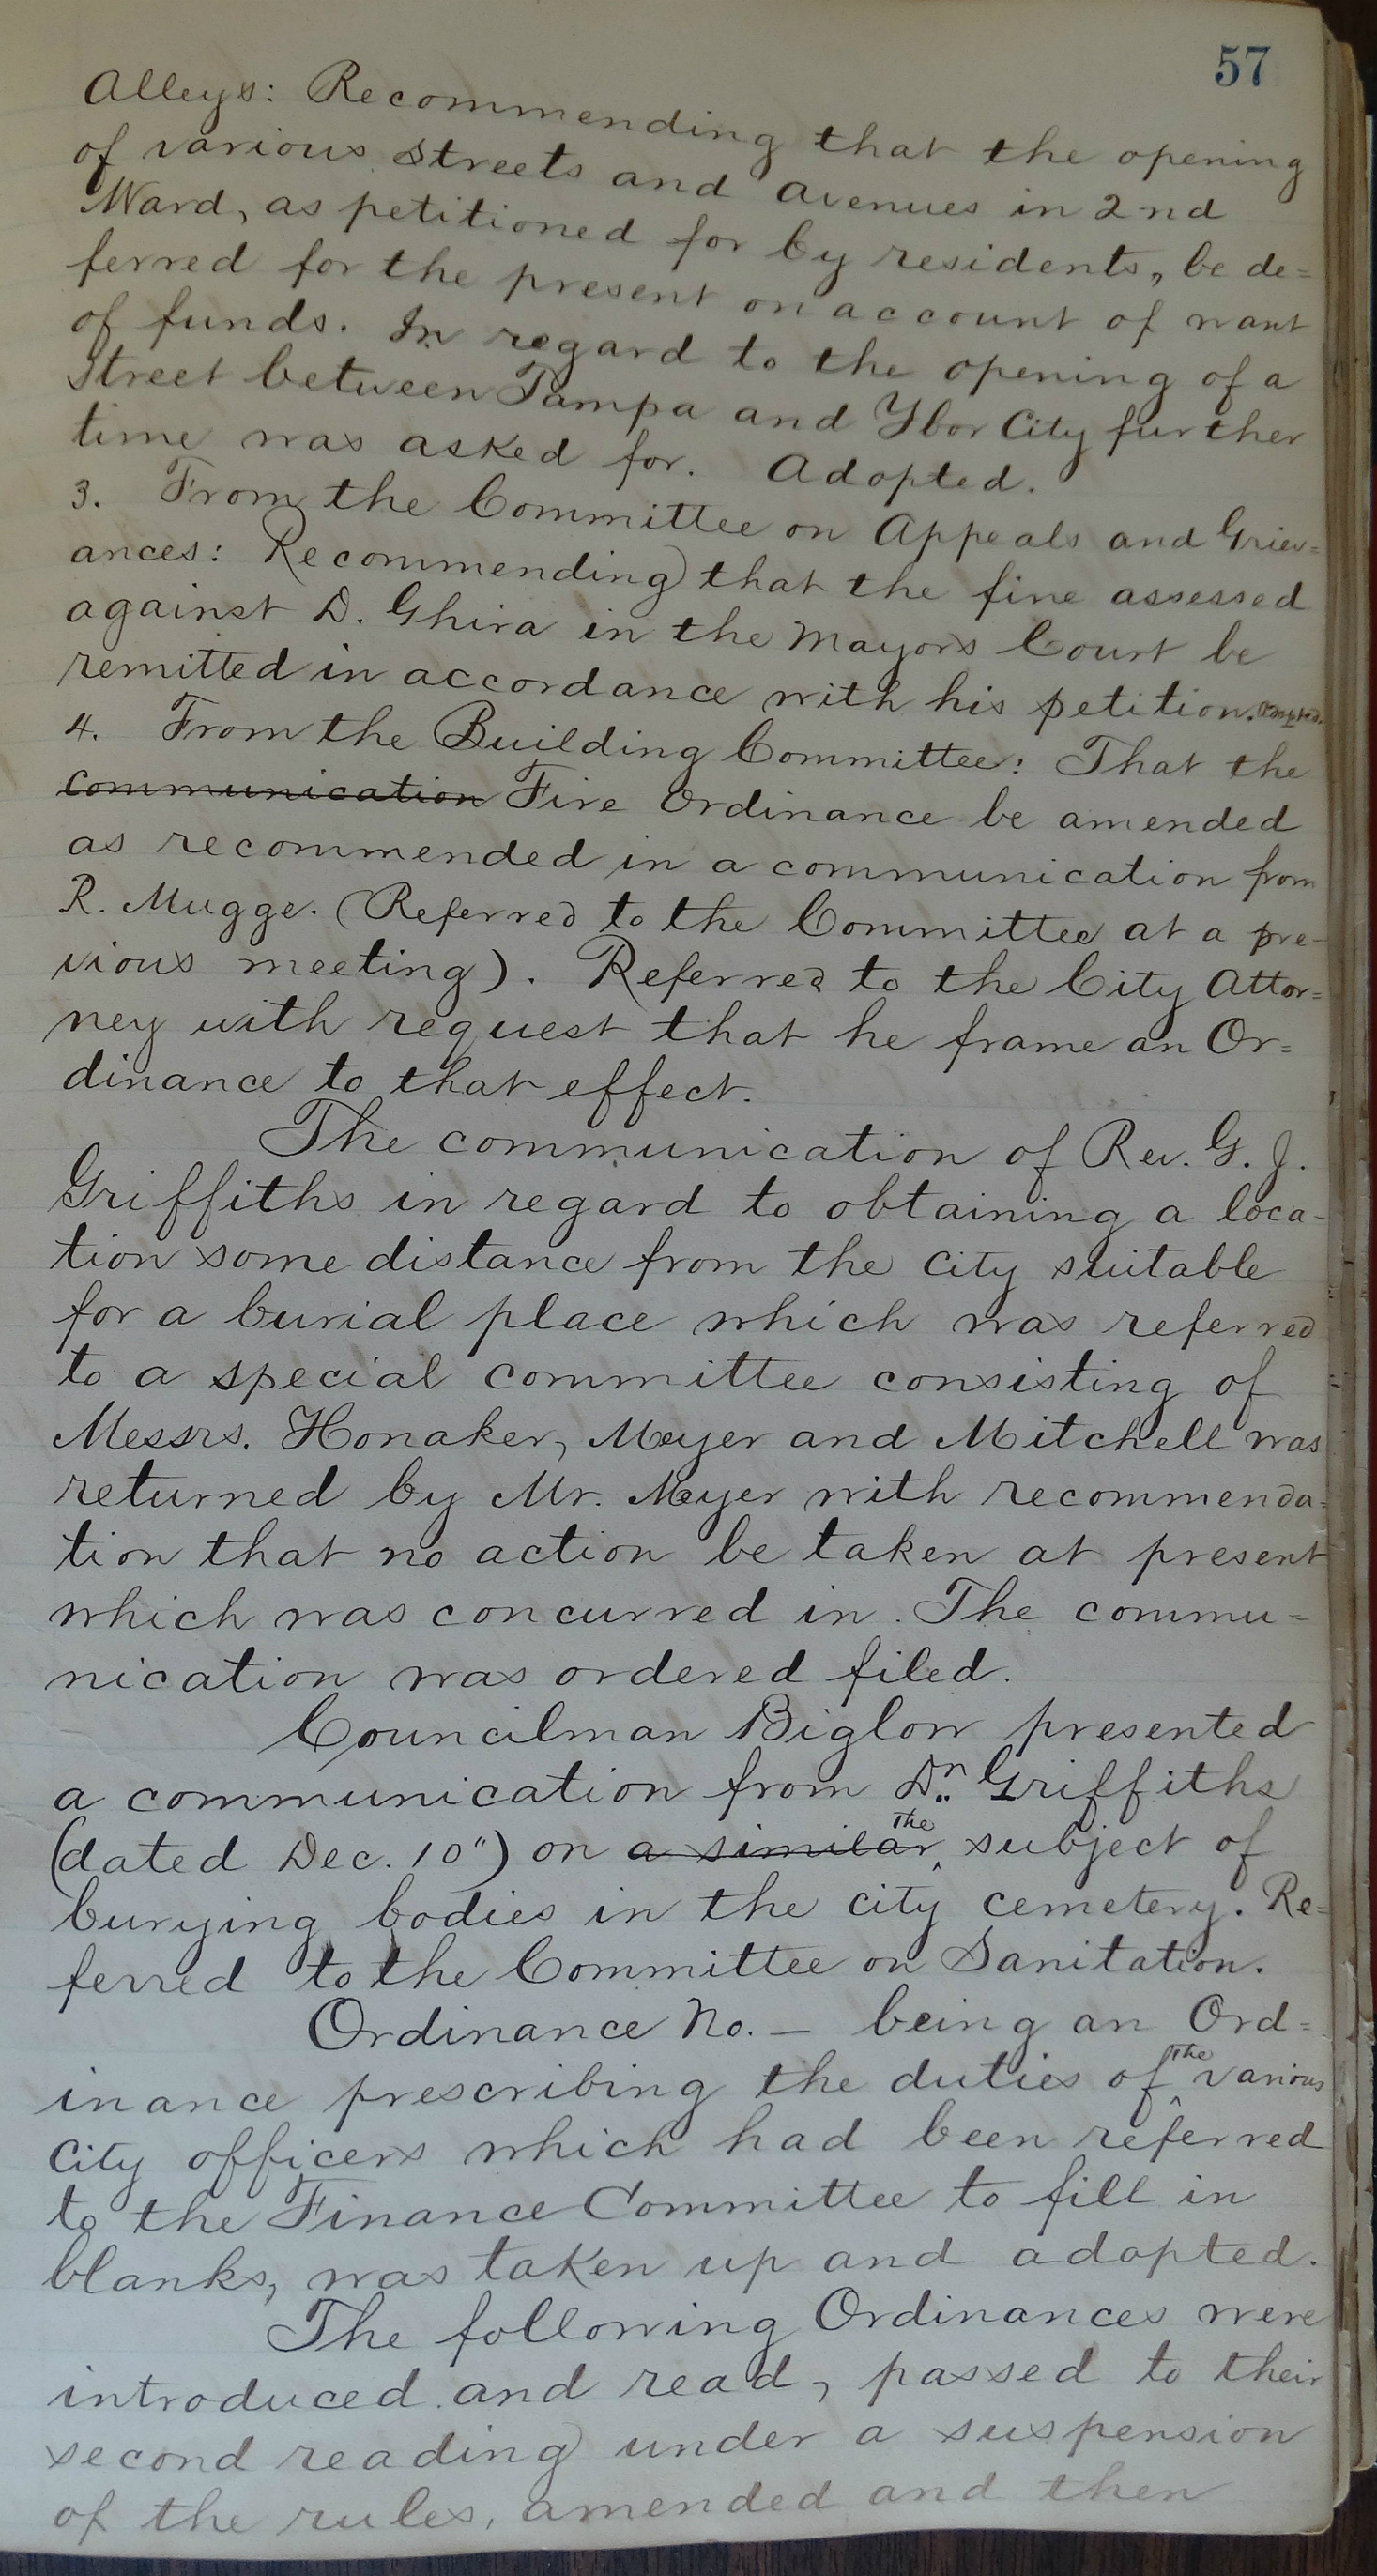 57
Alleys: Recommending that the opening
of various streets and avenues in 2nd
Ward, as petitioned for by residents, be de=
ferred for the present on account of want
of funds. In regard to the opening of a
street between Tampa and Ybor City further
time was asked for. Adopted.
3. From the Committee on Appeals and Griev=
ances: Recommending that the fine assessed
against D. Ghira in the Mayors Court be
remitted in accordance with his petition. Adopted.
4. From the Building Committee: That the
communication Fire Ordinance be amended
as recommended in a communication from
R. Mugge. (Referred to the Committee at a pre-
vious meeting). Referred to the City Attor=
ney with request that he frame an Or=
dinance to that effect.
The communication of Rev. G. J.
Griffiths in regard to obtaining a loca-
tion some distance from the city suitable
for a burial place which was referred
to a special committee consisting of
Messrs. Honaker, Meyer and Mitchell was
returned by Mr. Meyer with recommenda=
tion that no action be taken at present
which was concurred in. The commu=
nication was ordered filed.
Councilman Biglow presented
a communication from Dr. Griffiths
(dated Dec. 10") on a similar the subject of
burying bodies in the city cemetery. Re=
ferred to the Committee on Sanitation.
Ordinance No. — being an Ord=
inance prescribing the duties of the various
City officers which had been referred
to the Finance Committee to fill in
blanks, was taken up and adopted.
The following Ordinances were
introduced and read, passed to their
second reading under a suspension
of the rules, amended and then